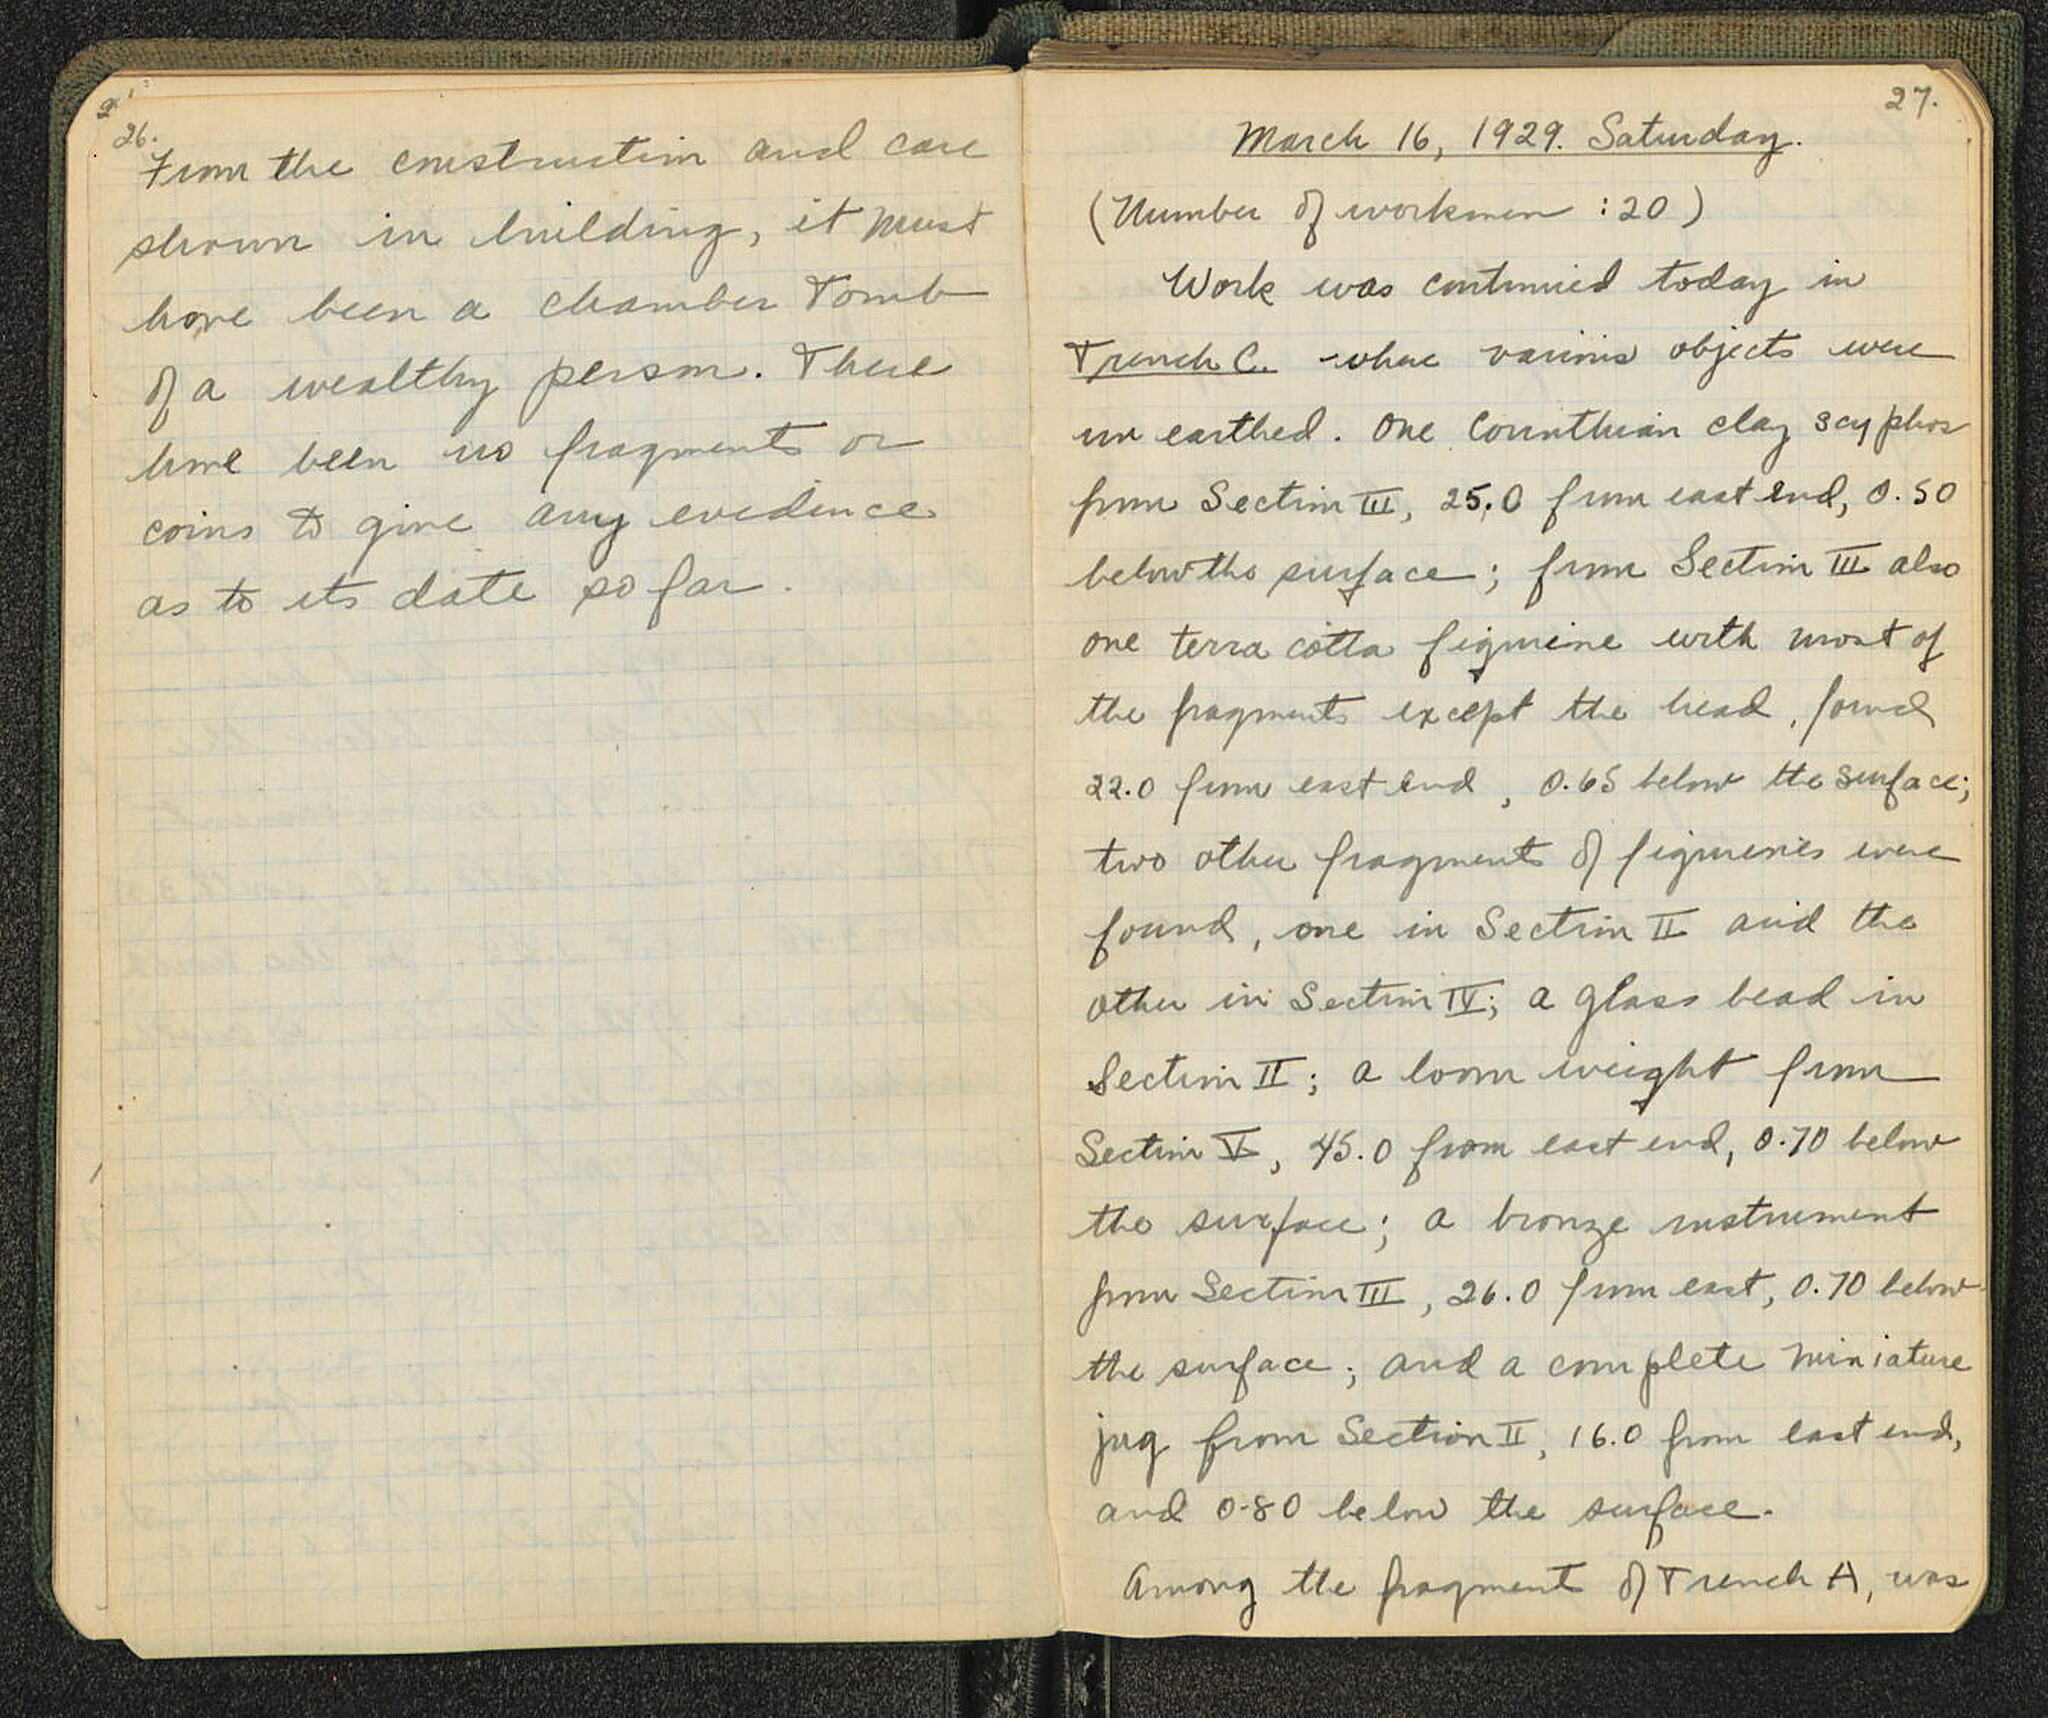 26.
From the construction and care
shown in building, it must
have been a chamber Tomb
of a wealthy person. There
have been no fragments or
coins to give any evidence
as to its date so far.
27.
March 16, 1929. Saturday.
(Number of workmen : 20)
Work was continued today in
Trench C. where various objects were
un earthed. One Corinthian clay scyphos
from Section III, 25.0 from east end, 0.50
below the surface; from Section III also
one terra cotta figurine with most of
the fragments except the head, found
22.0 from east end, 0.65 below the surface;
two other fragments of figurines were
found, one in Section II and the
other in Section IV; a glass bead in
Section II; a loom weight from
Section V, 45.0 from east end, 0.70 below
the surface; a bronze instrument
from Section III, 26.0 from east, 0.70 below
the surface; and a complete miniature
jug from Section II, 16.0 from east end,
and 0.80 below the surface.
Among the fragments of Trench A, was